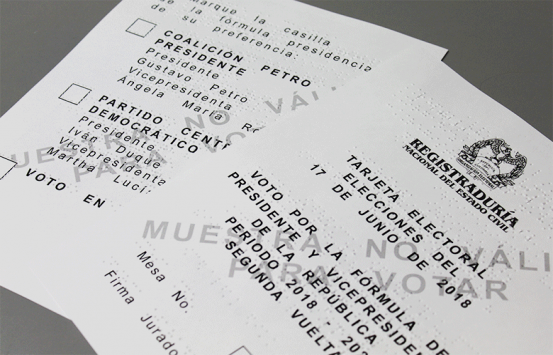 Marque la casilla
de la fórmula presidencia
de su preferencia:
COALICIÓN PETRO
PRESIDENTE
Presidente
Gustavo Petro
Vicepresidenta
Ángela María
PARTIDO
DEMOCRÁTICO
Presidente
Iván Duque
Vicepresidenta
Martha
VOTO EN
MUESTRA NO
PARA
REGISTRADURÍA
NACIONAL DEL ESTADO CIVIL
TARJETA ELECTORAL
ELECCIONES DEL
17 DE JUNIO DE 2018
VOTO POR LA FÓRMULA DE
PRESIDENTE Y
DE LA REPÚBLICA
PERIODO 2018 -
SEGUNDA VUELTA
MUESTRA NO
PARA VOTAR
Mesa No.
Firma Jurado